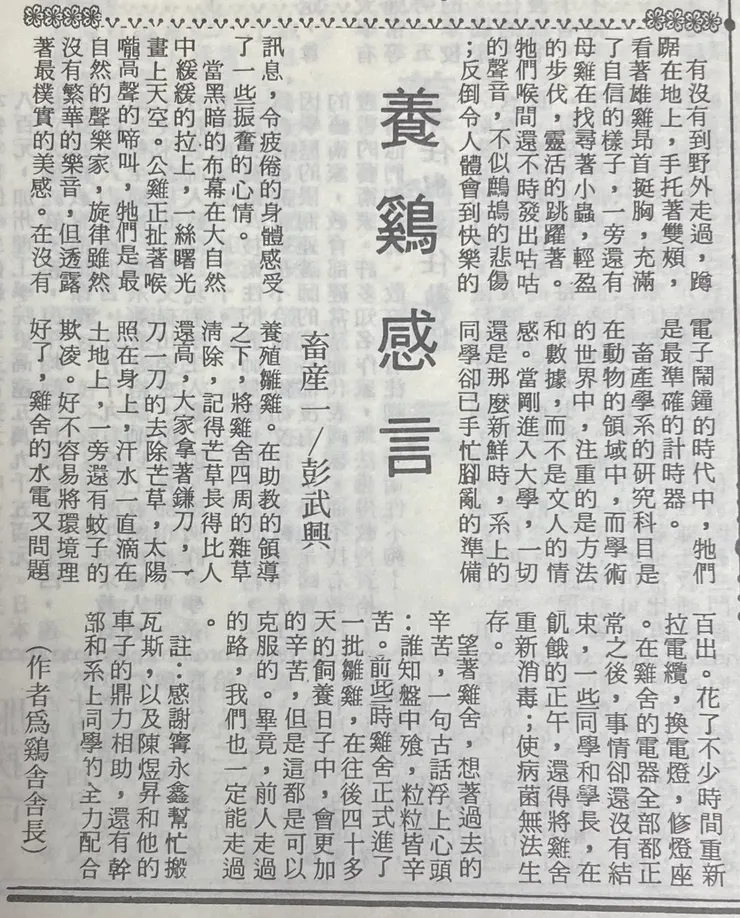 養鷄感言
畜産一/彭武興
有沒有到野外走過，蹲
踞在地上，手托著雙頰，
看著雄雞昂首挺胸，充滿
了自信的樣子，一旁還有
母雞在找尋著小蟲，輕盈
的步伐，靈活的跳躍著。
牠們喉間還不時發出咕咕
的聲音，不似鷓鴣的悲傷
；反倒令人體會到快樂的
訊息，令疲倦的身體感受
了一些振奮的心情。
當黑暗的布幕在大自然
中緩緩的拉上，一絲曙光
畫上天空。公雞正扯著喉
嚨高聲的啼叫，牠們是最
自然的聲樂家，旋律雖然
沒有繁華的樂音，但透露
著最樸實的美感。在沒有
電子鬧鐘的時代中，牠們
是最準確的計時器。
畜產學系的研究科目是
在動物的領域中，而學術
的世界中，注重的是方法
和數據，而不是文人的情
感。當剛進入大學，一切
還是那麼新鮮時，系上的
同學卻已手忙腳亂的準備
養殖雛雞。在助教的領導
之下，將雞舍四周的雜草
清除，記得芒草長得比人
還高，大家拿著鎌刀，一
刀一刀的去除芒草，太陽
照在身上，汗水一直滴在
土地上，一旁還有蚊子的
欺凌。好不容易將環境理
好了，雞舍的水電又問題
百出。花了不少時間重新
拉電纜，換電燈，修燈座
。在雞舍的電器全部都正
常之後，事情卻還沒有結
束，一些同學和學長，在
飢餓的正午，還得將雞舍
重新消毒；使病菌無法生
存。
望著雞舍，想著過去的
辛苦，一句古話浮上心頭
：誰知盤中飱，粒粒皆辛
苦。前些時雞舍正式進了
一批雛雞，在往後四十多
天的飼養日子中，會更加
的辛苦，但是這都是可以
克服的。畢竟，前人走過
的路，我們也一定能走過
。
註：感謝甯永鑫幫忙搬
瓦斯，以及陳煜昇和他的
車子的鼎力相助，還有幹
部和系上同學的全力配合
（作者爲鷄舍舍長）